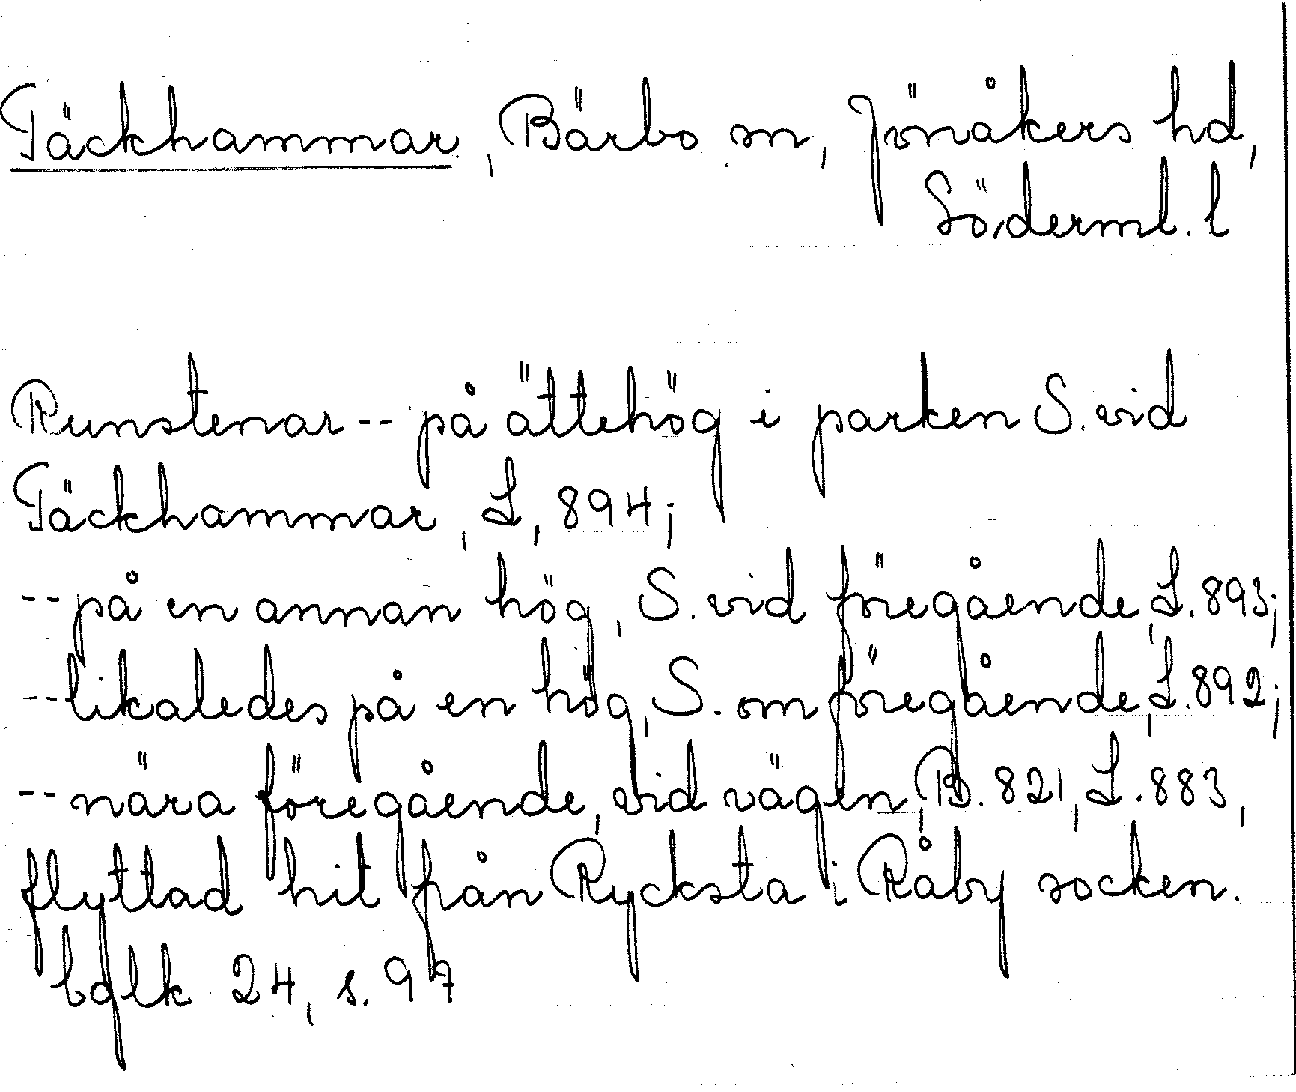 Täckhammar, Bärbo sn, Jönåkers hd,
Söderml. l
Runstenar -- på ättehög i parken S. vid
Täckhammar, L, 894;
-- på en annan hög, S. vid föregående, L. 893;
-- likaledes på en hög, S. om föregående, L. 892;
-- nära föregående, vid vägen, B. 821, L. 883,
flyttad hit från Rycksta i Råby socken.
bglk 24, s. 97